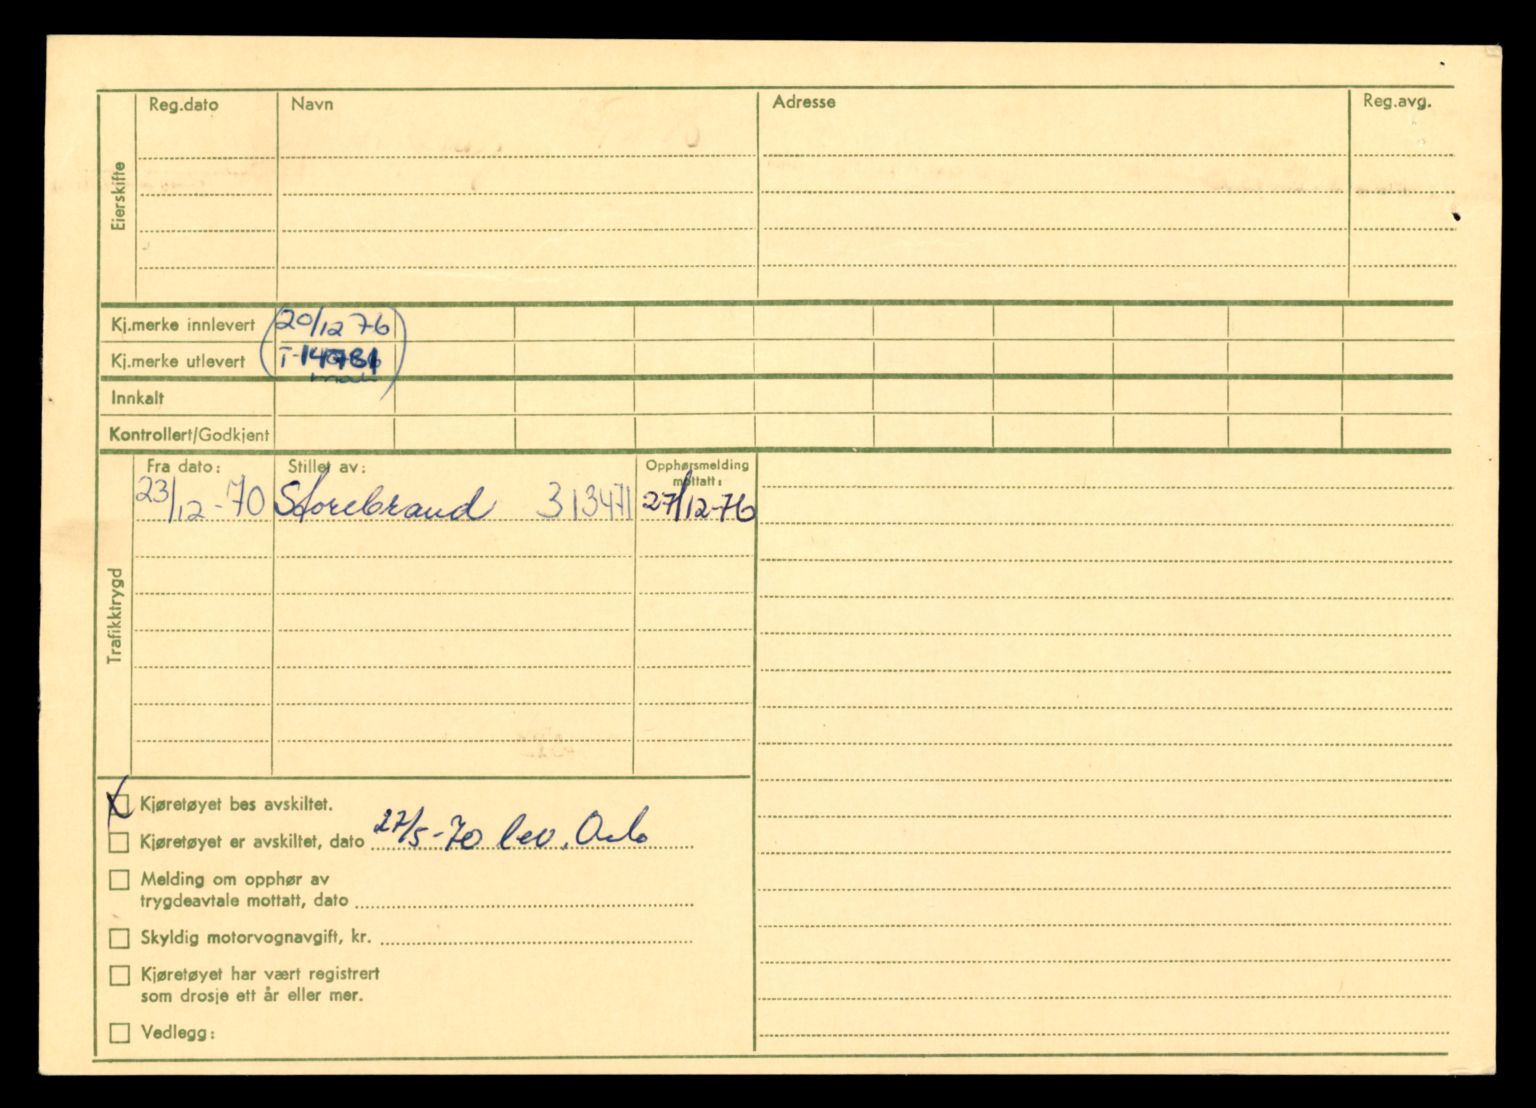 Reg.dato Navn Adresse Reg.avg.
Eierskifte
Kj.merke innlevert 20/12 76
Kj.merke utlevert T-14781
Innkalt
Kontrollert/Godkjent
Trafikktrygd
Fra dato: Stillet av: Opphørsmelding
mottatt:
23/12-70 Storebrand 313471 27/12-76
Kjøretøyet bes avskiltet.
Kjøretøyet er avskiltet, dato 27/5-70 lev. Oslo
Melding om opphør av
trygdeavtale mottatt, dato
Skyldig motorvognavgift, kr.
Kjøretøyet har vært registrert
som drosje ett år eller mer.
Vedlegg: